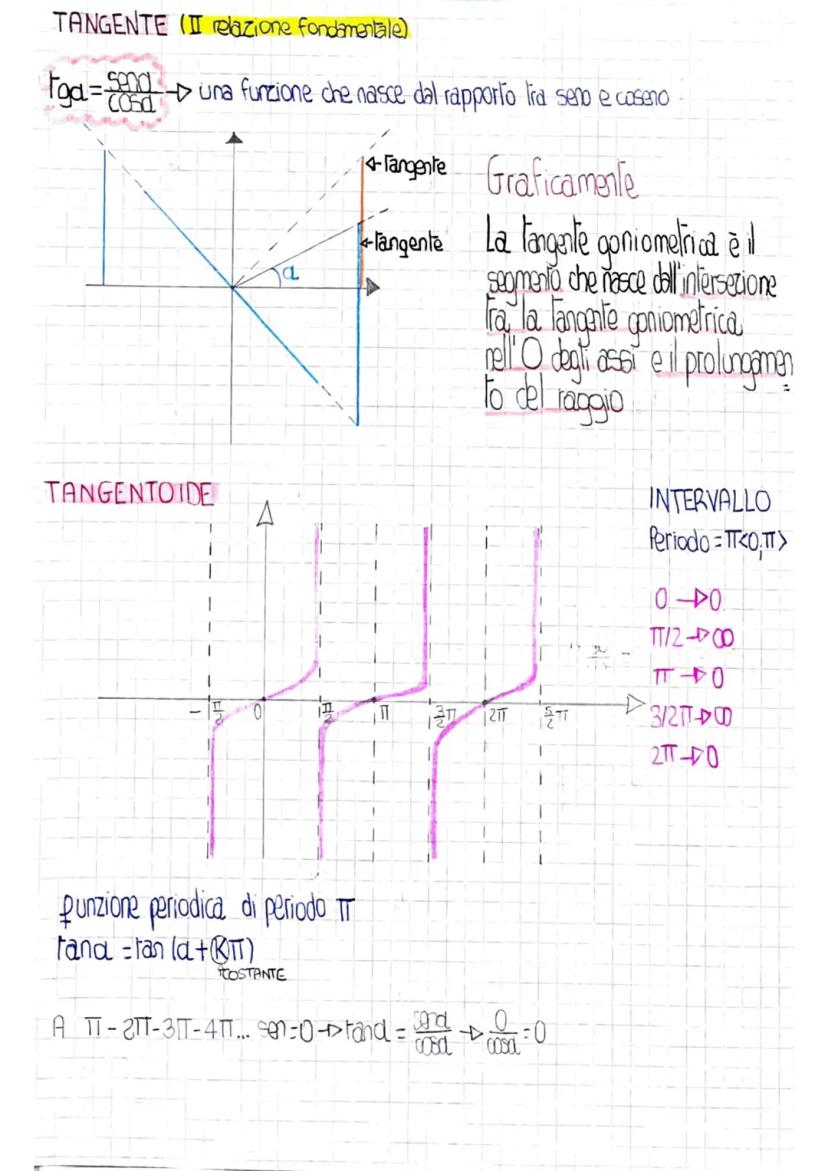 TANGENTE (II relazione fondamentale)
tgα = senα/cosα → una funzione che nasce dal rapporto tra seno e coseno
←Tangente
←Tangente
α
Graficamente
La tangente goniometrica è il
segmento che nasce dall'intersezione
tra la tangente goniometrica
nell'O degli assi e il prolungamen
to del raggio
TANGENTOIDE
INTERVALLO
Periodo = π<0,π>
0 → 0
π/2 → ∞
π → 0
3/2π → ∞
2π → 0
-π/2 0 π/2 π 3/2π 2π 5/2π
funzione periodica di periodo π
tanα = tan (α + Kπ)
↑COSTANTE
A π - 2π - 3π - 4π... sen=0 → tanα = senα/cosα → 0/cosα = 0